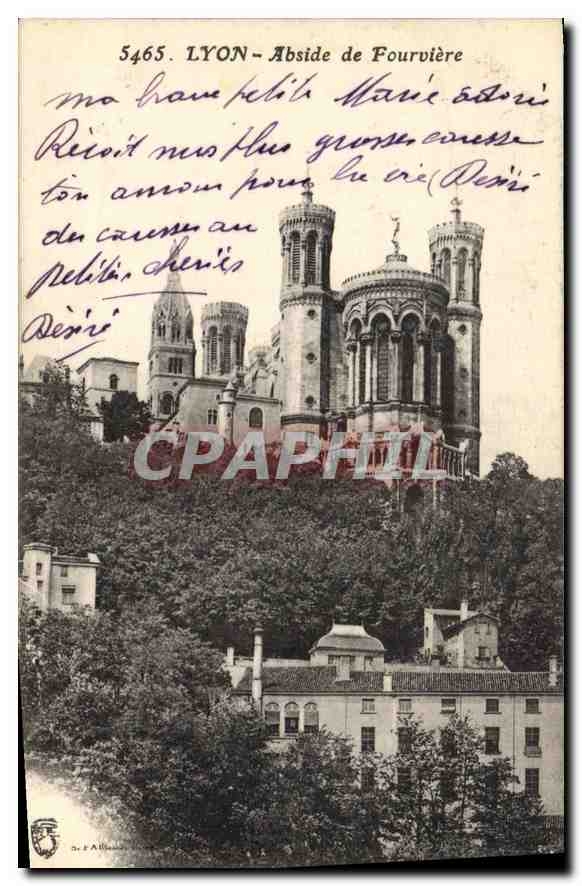 5465. LYON - Abside de Fourvière
ma brave petite Marie adorée
Reçoit mes plus grosses caresse
ton amour pour la vie (Désiré
des caresses au
petites chéries
Désiré
CPAPHIL.com